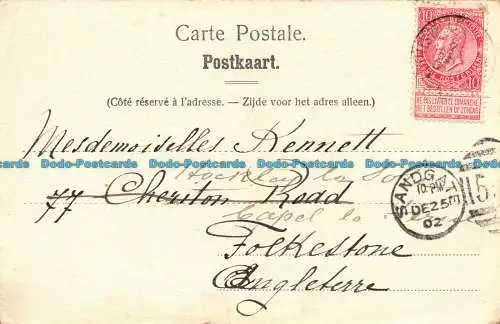 Carte Postale.
Postkaart.
(Côté réservé à l'adresse. — Zijde voor het adres alleen.)
NE PAS LIVRER LE DIMANCHE
NIET BESTELLEN OP ZONDAG
Mesdemoiselles Kennett
77 Cheriton Road
Capel le
Folkestone
Engleterre
SANDGATE
10 PM
DE 25
02
15
Dodo-Postcards Dodo-Postcards Dodo-Postcards Dodo-Postcards Dodo-Postcards